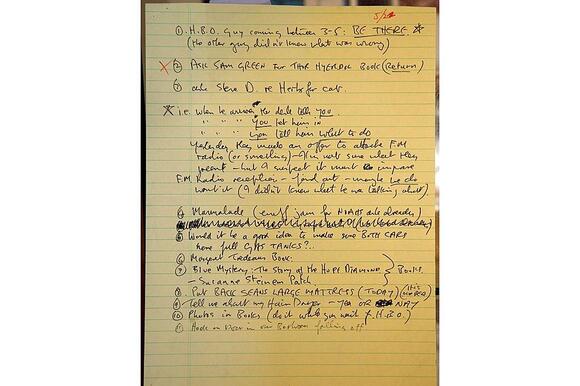 5/2
① H.B.O. Guy coming between 3-5: BE THERE.
(the other guy didn't know what was wrong)
X ② ASK SAM GREEN FOR THOR HYERDAL BOOK (Return)
③ ask Steve D. re Herbs for cat.
i.e. when he arrives the desk tells YOU
" " " " YOU let him in
" " " " you tell him what to do
yesterday they made an offer to attach F.M
radio (or something) – I'm not sure what they
meant – but I suspect it must improve
F.M. Radio reception – find out – maybe we do
want it (I didn't know what he was talking about)
④ Marmalade (enuff jam for already)
⑤ Would it be a good idea to make sure BOTH CARS
have full GAS TANKS?..
⑥ Margaret Trudeau Book.
⑦ Blue Mystery: The Story of the HOPE DIAMOND } Books
– Susanne Steinem Patch.
⑧ PUT BACK SEANS LARGE MATTRESS (TODAY)
⑨ Tell us about my Hair Dryer – YEA OR NAY
⑩ Photos in Books (do it while you wait for H.B.O.)
⑪ Hook on Door in our Bathroom falling off